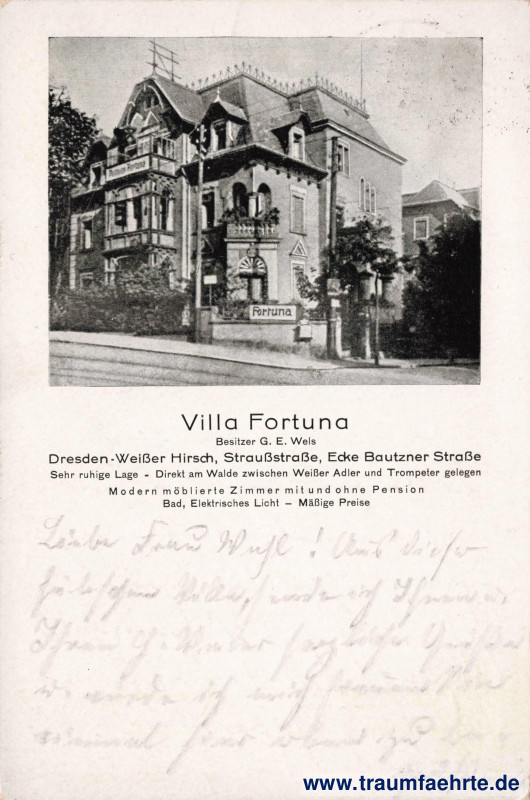 Pension Fortuna
Fortuna
Villa Fortuna
Besitzer G. E. Wels
Dresden-Weißer Hirsch, Straußstraße, Ecke Bautzner Straße
Sehr ruhige Lage - Direkt am Walde zwischen Weißer Adler und Trompeter gelegen
Modern möblierte Zimmer mit und ohne Pension
Bad, Elektrisches Licht – Mäßige Preise
Liebe Frau Wuhl! Aus dieser
hübschen Villa, sende ich Ihnen u.
Ihrem herzliche Grüße
würde ich mich freuen Sie
einmal hier zu
www.traumfaehrte.de